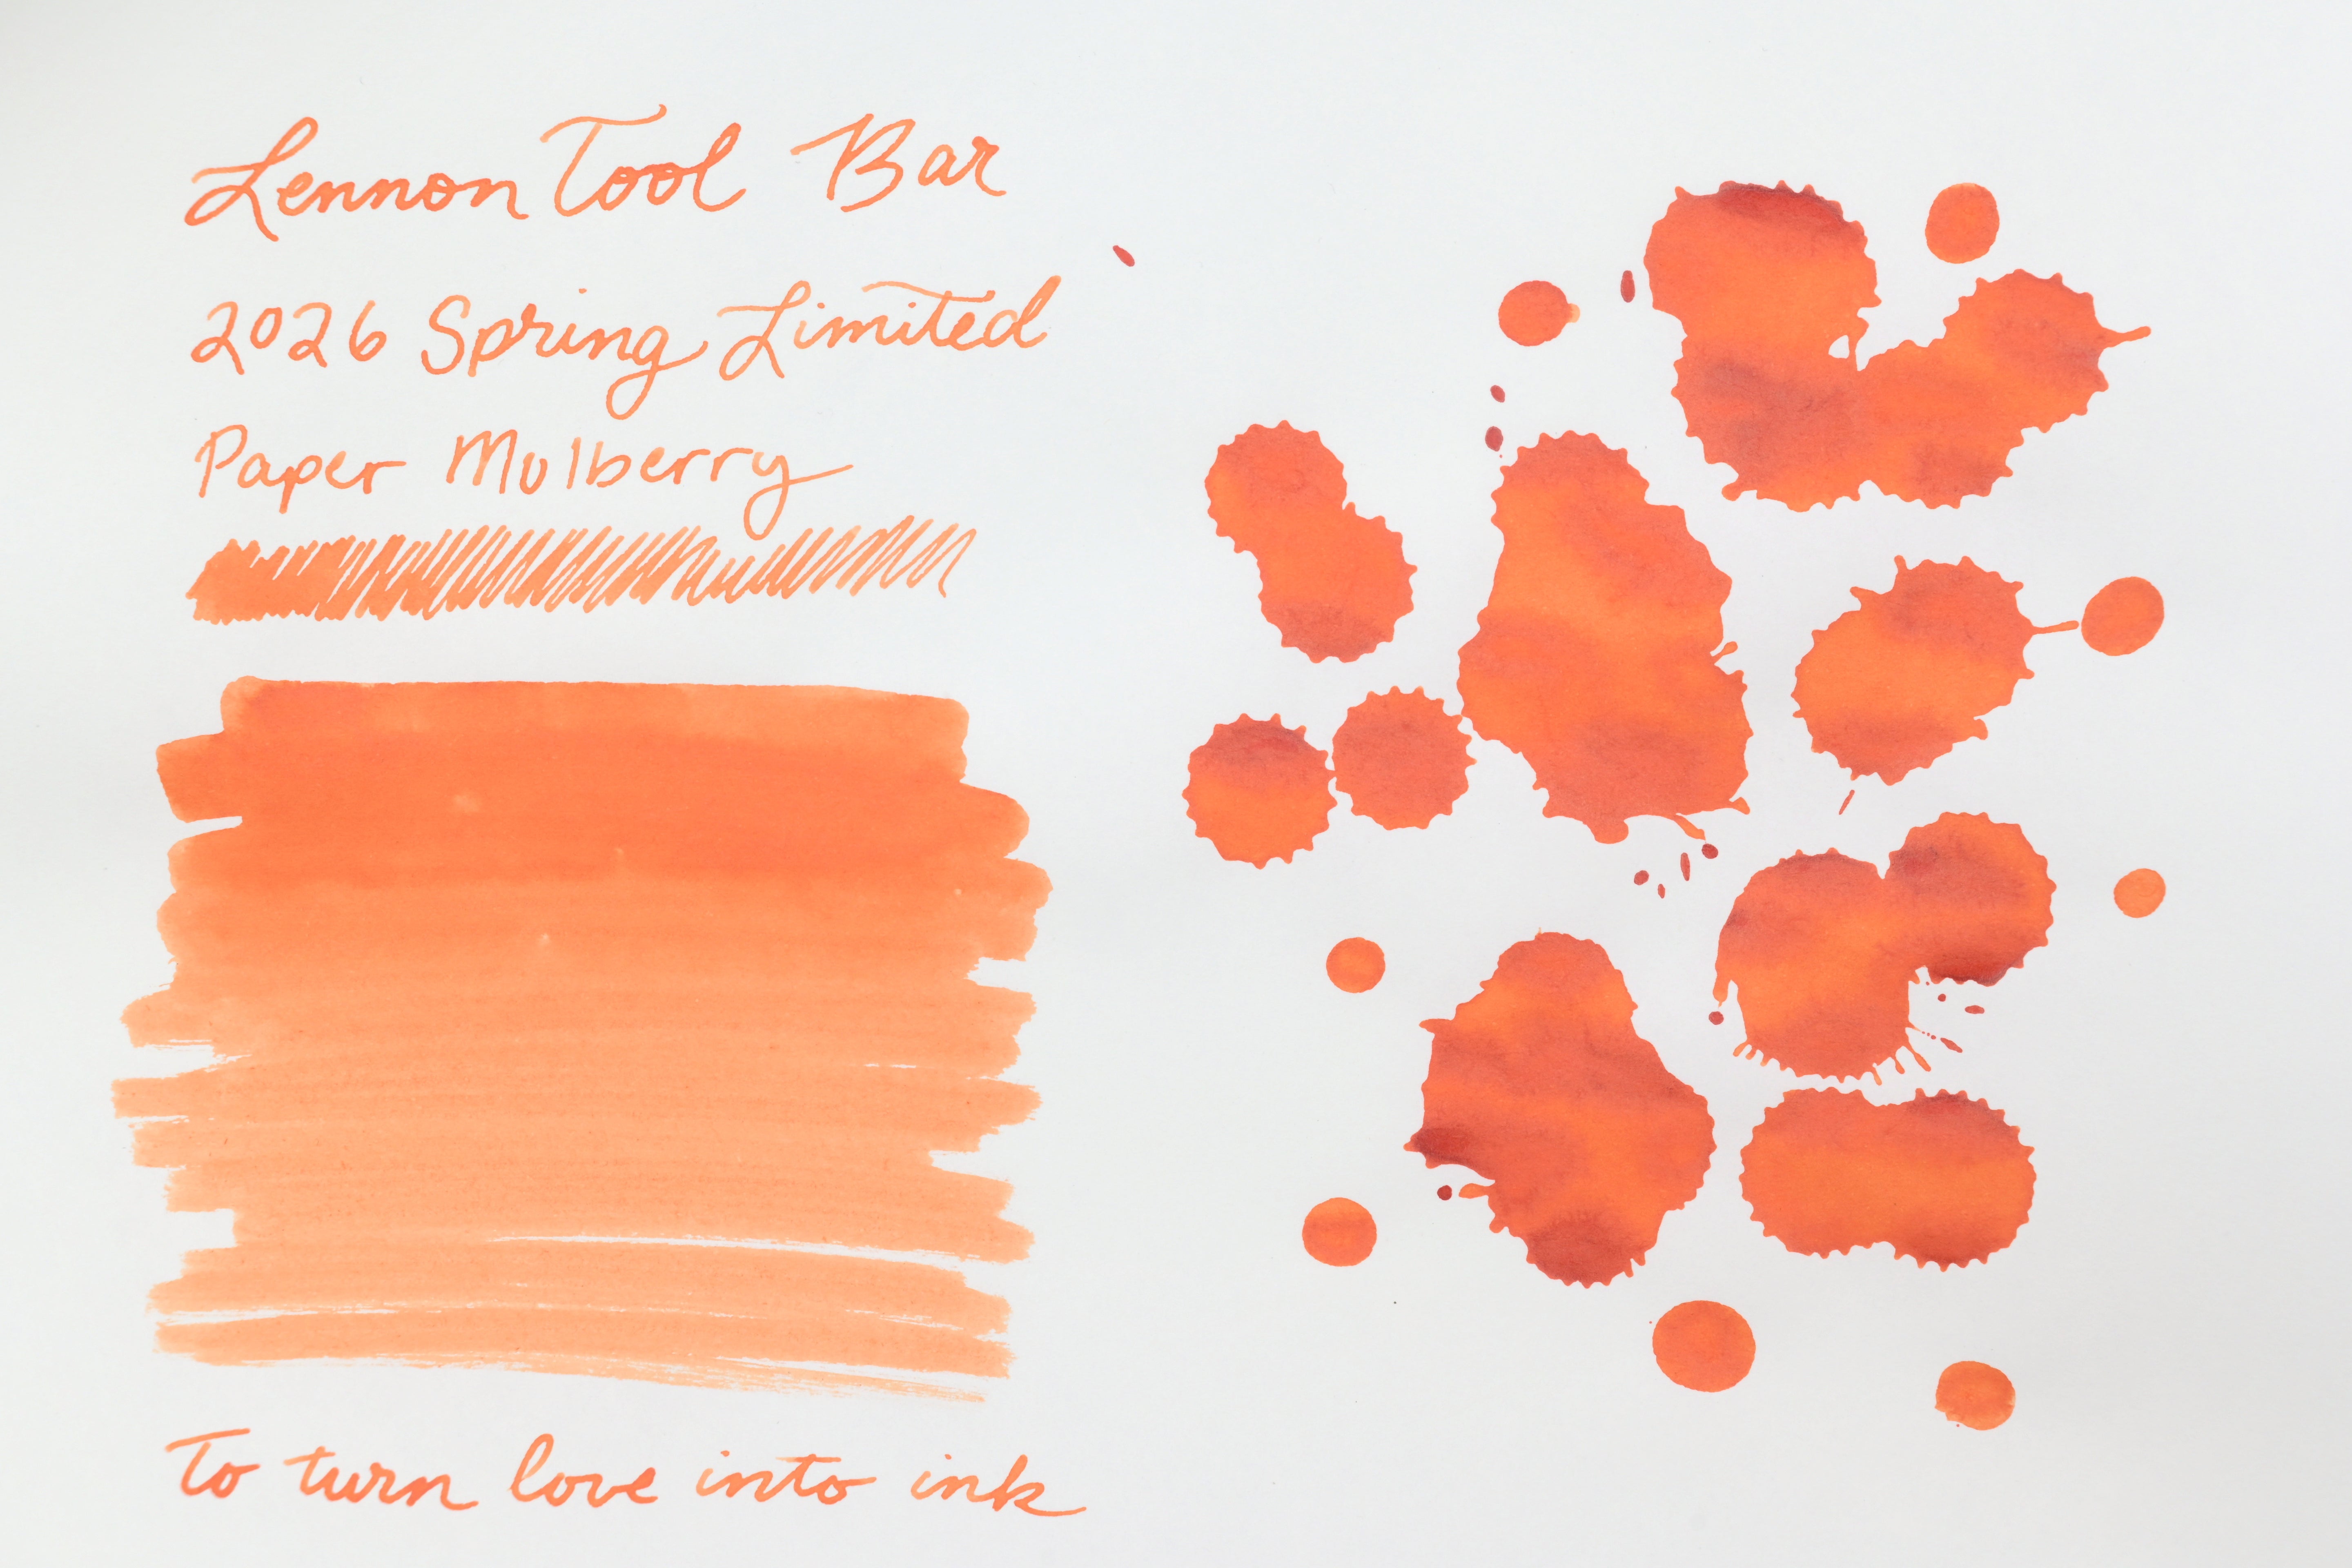 Lennon Tool Bar
2026 Spring Limited
Paper Mulberry
To turn love into ink